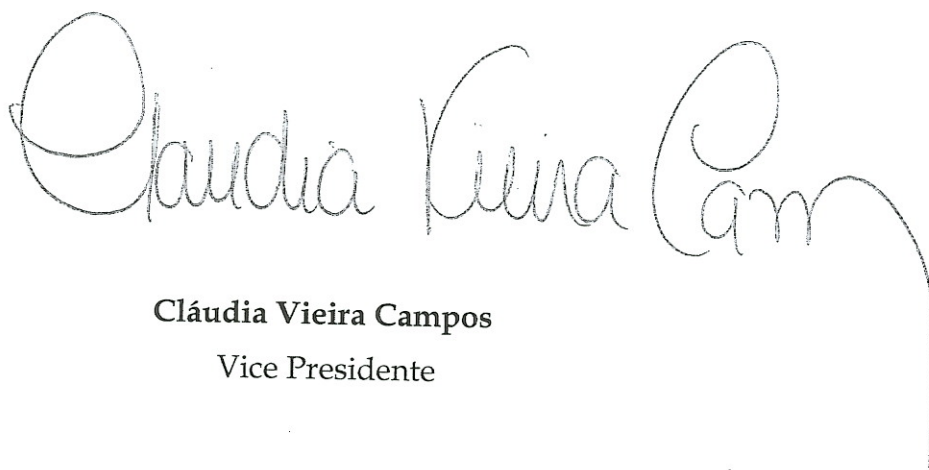 Cláudia Vieira Cam
Cláudia Vieira Campos
Vice Presidente